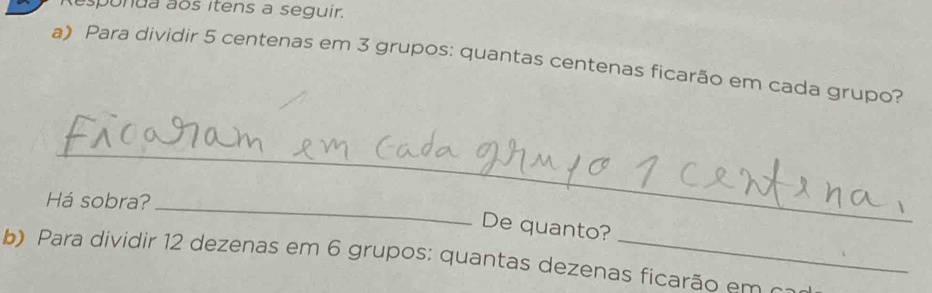 Responda aos itens a seguir.
a) Para dividir 5 centenas em 3 grupos: quantas centenas ficarão em cada grupo?
Ficaram em cada grupo 1 centena.
Há sobra? ____ De quanto? ____
b) Para dividir 12 dezenas em 6 grupos: quantas dezenas ficarão em